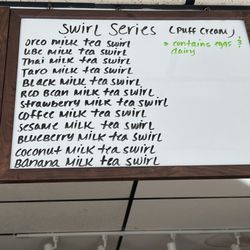 Swirl Series (Puff Cream)
* contains eggs &
dairy
Oreo milk tea swirl
Ube milk tea swirl
Thai milk tea swirl
Taro milk tea swirl
Black milk tea swirl
Red Bean milk tea swirl
Strawberry milk tea swirl
Coffee milk tea swirl
Sesame milk tea swirl
Blueberry milk tea swirl
Coconut milk tea swirl
Banana milk tea swirl